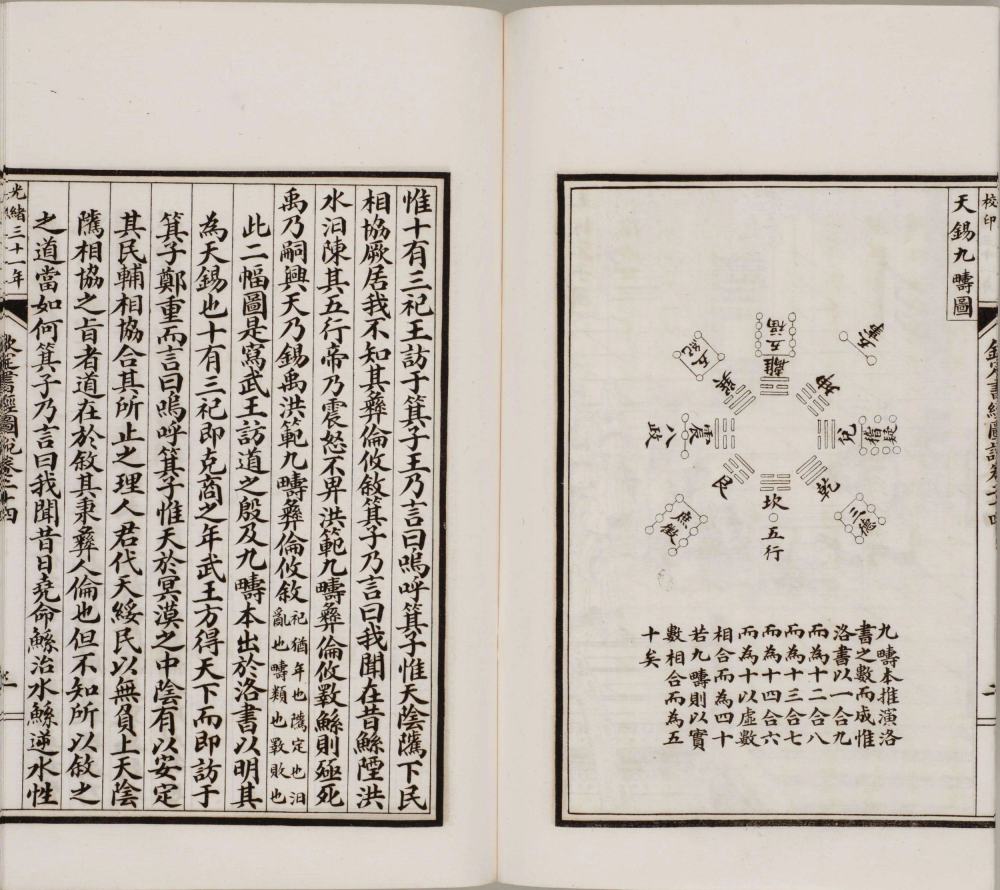 校印
天錫九疇圖
離
五福
坤
五事
兌
稽疑
乾
三德
坎
五行
艮
庶徵
震
八政
巽
五紀
九疇本推演洛
書之數而成惟
洛書以一合九
而為十二合八
而為十三合七
而為十四合六
而為十以虛數
相合而為四十
若九疇則以實
數相合而為五
十矣
惟十有三祀王訪于箕子王乃言曰嗚呼箕子惟天陰隲下民
相協厥居我不知其彝倫攸敘箕子乃言曰我聞在昔鯀陻洪
水汨陳其五行帝乃震怒不畀洪範九疇彝倫攸斁鯀則殛死
禹乃嗣興天乃錫禹洪範九疇彝倫攸敘祀猶年也隲定也汨
亂也疇類也斁敗也
此二幅圖是寫武王訪道之殷及九疇本出於洛書以明其
為天錫也十有三祀即克商之年武王方得天下而即訪于
箕子鄭重而言曰嗚呼箕子惟天於冥漠之中陰有以安定
其民輔相協合其所止之理人君代天綏民以無負上天陰
隲相協之旨者道在於敘其秉彝人倫也但不知所以敘之
之道當如何箕子乃言曰我聞昔日堯命鯀治水鯀逆水性
光緒三十一年